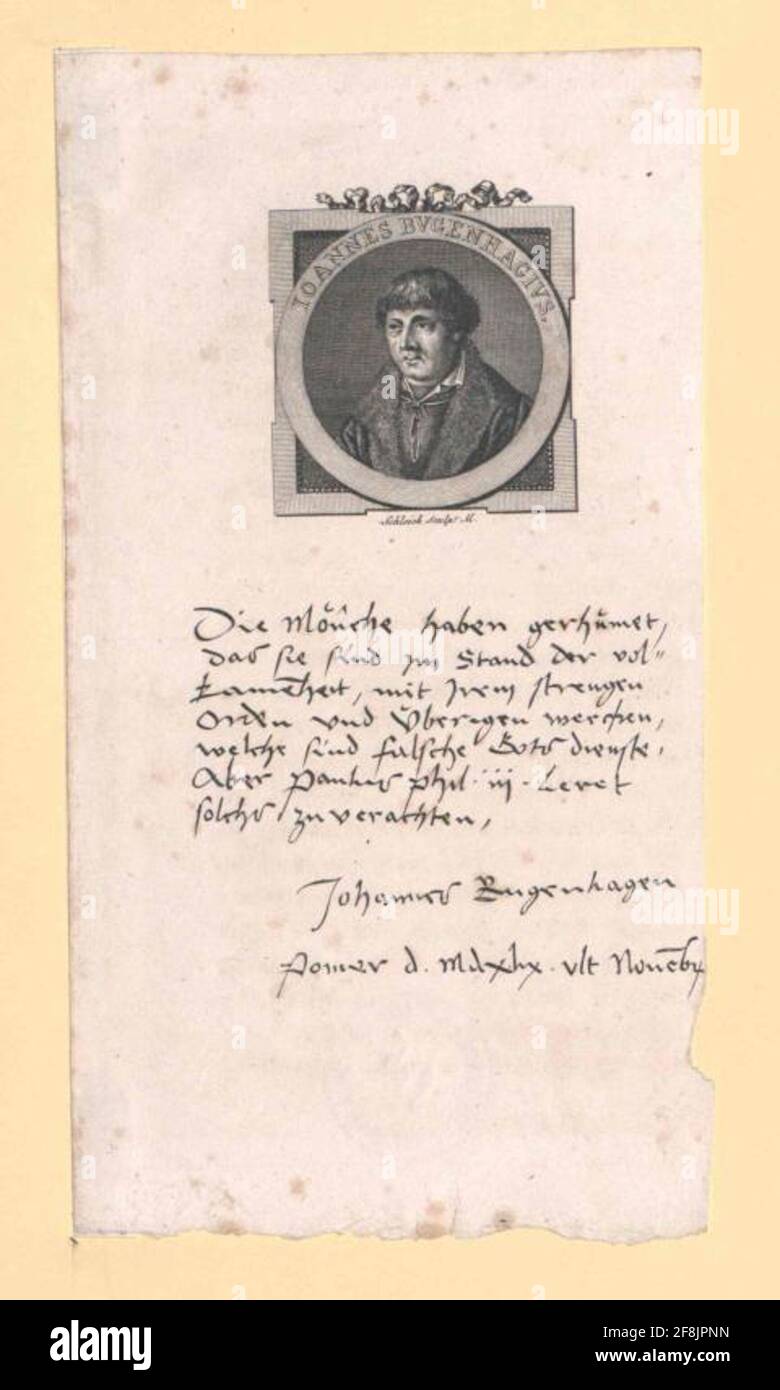 IOANNES BVGENHAGIVS.
Schleich sculps. M.
Die Mönche haben gerhümet,
das sie sind im Stand der vol-
kamēheit, mit jrem strengen
Orden vnd Überigen wercken,
welche sind falsche Gots dienste.
Aber Paulus phil. iij. Leret
solchs zuverachten,
Johannes Bugenhagen
Pomer d. Mdxlix. vlt Nouēbr
alamy
Image ID: 2F8JPNN
www.alamy.com